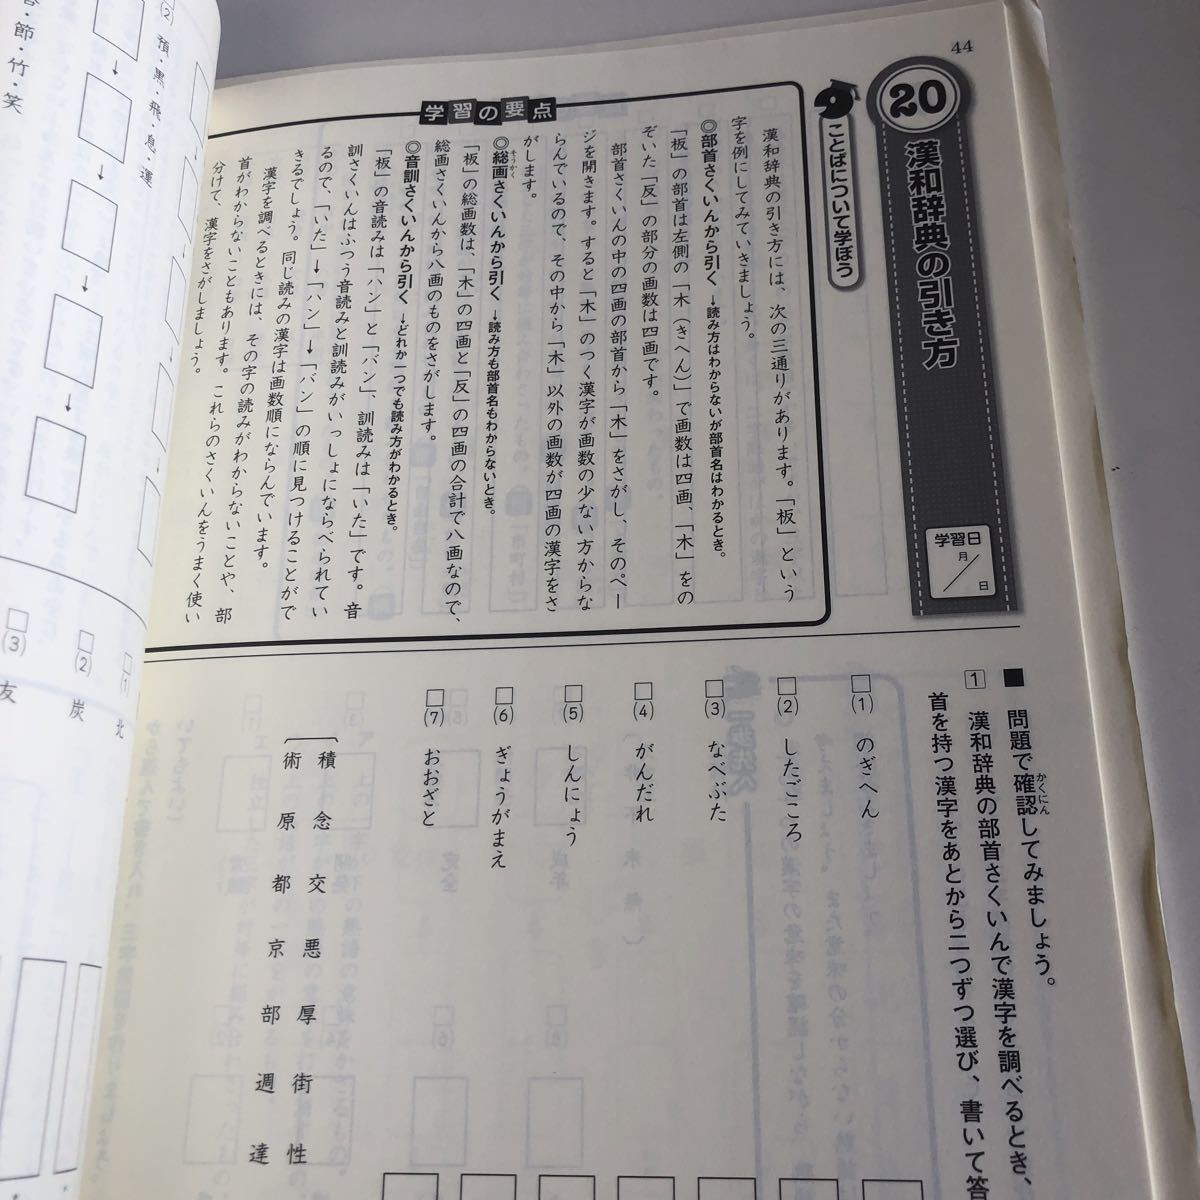 44
20
漢和辞典の引き方
学習日
月／日
ことばについて学ぼう
学習の要点
漢和辞典の引き方には、次の三通りがあります。「板」という
字を例にしてみていきましょう。
◎部首さくいんから引く→読み方はわからないが部首名はわかるとき。
「板」の部首は左側の「木（きへん）」で画数は四画、「木」をの
ぞいた「反」の部分の画数は四画です。
部首さくいんの中の四画の部首から「木」をさがし、そのペー
ジを開きます。すると「木」のつく漢字が画数の少ない方からな
らんでいるので、その中から「木」以外の画数が四画の漢字をさ
がします。
◎総画さくいんから引く→読み方も部首名もわからないとき。
そうかく
「板」の総画数は、「木」の四画と「反」の四画の合計で八画なので、
総画さくいんから八画のものをさがします。
◎音訓さくいんから引く→どれか一つでも読み方がわかるとき。
「板」の音読みは「ハン」と「バン」、訓読みは「いた」です。音
訓さくいんはふつう音読みと訓読みがいっしょにならべられてい
るので、「いた」→「ハン」→「バン」の順に見つけることがで
きるでしょう。同じ読みの漢字は画数順にならんでいます。
漢字を調べるときには、その字の読みがわからないことや、部
首がわからないこともあります。これらのさくいんをうまく使い
分けて、漢字をさがしましょう。
■問題で確認してみましょう。
かくにん
1 漢和辞典の部首さくいんで漢字を調べるとき、
首を持つ漢字をあとから二つずつ選び、書いて答
(1) のぎへん
(2) したごころ
(3) なべぶた
(4) がんだれ
(5) しんにょう
(6) ぎょうがまえ
(7) おおざと
積 念 交 悪 厚 街 性
術 原 都 京 部 週 達
(2) 預・黒・飛・息・運
節・竹・笑
(1) 北
(2) 炭
(3) 友